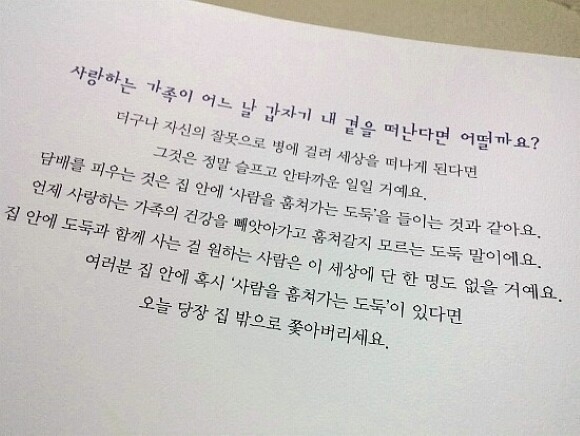 사랑하는 가족이 어느 날 갑자기 내 곁을 떠난다면 어떨까요?
더구나 자신의 잘못으로 병에 걸려 세상을 떠나게 된다면
그것은 정말 슬프고 안타까운 일일 거예요.
담배를 피우는 것은 집 안에 '사람을 훔쳐가는 도둑'을 들이는 것과 같아요.
언제 사랑하는 가족의 건강을 빼앗아가고 훔쳐갈지 모르는 도둑 말이에요.
집 안에 도둑과 함께 사는 걸 원하는 사람은 이 세상에 단 한 명도 없을 거예요.
여러분 집 안에 혹시 '사람을 훔쳐가는 도둑'이 있다면
오늘 당장 집 밖으로 쫓아버리세요.